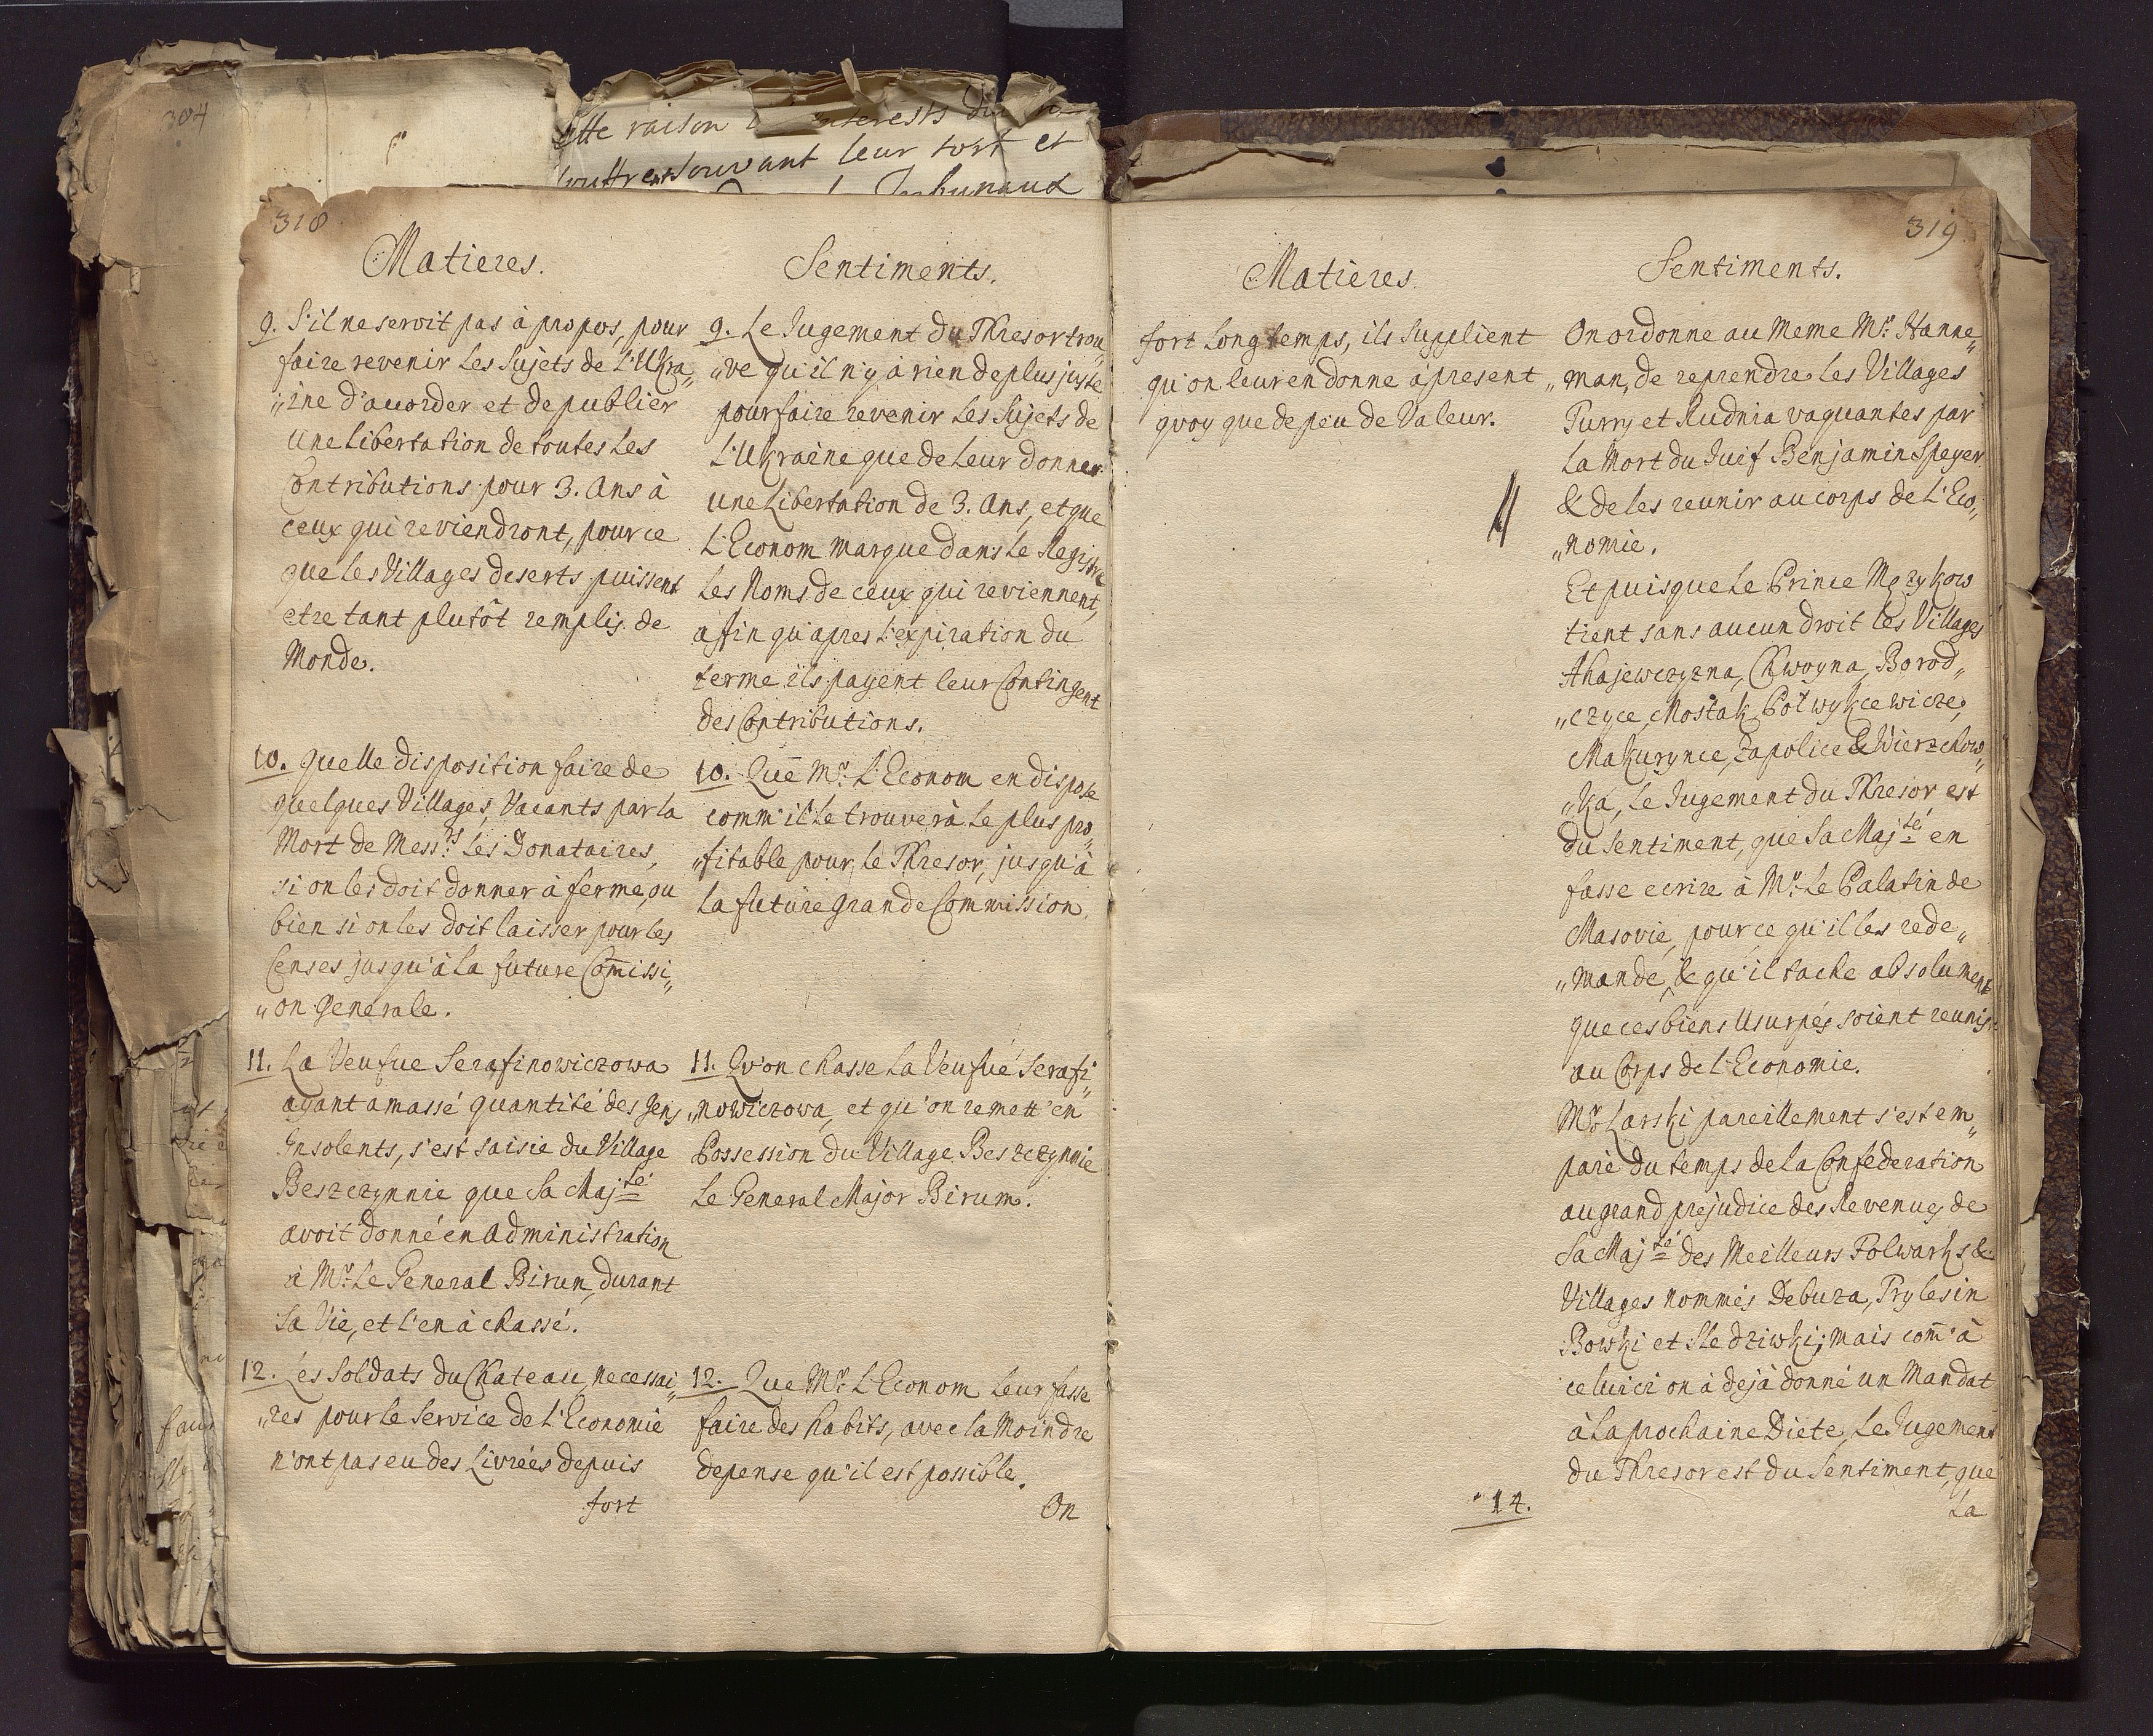 304
cette raison
souvant leur tort et
318
Matieres.
9. S'il ne seroit pas à propos, pour
faire revenir les Sujets de L'Ukra„
„ine d'acorder et de publier
Une Libertation de toutes Les
Contributions pour 3. Ans à
ceux qui reviendront, pour ce
que les Villages deserts puissent
etre tant plutôt remplis de
Monde.
10. Quelle disposition faire de
quelques Villages, Vacants par la
Mort de Mess.rs Les Donataires,
si on les doit donner à ferme, ou
bien si on les doit laisser pour les
Censes jusqu'à la future Com̃issi„
„on Generale.
11. La Veufue Serafinowiczowa
ayant amassé quantité des gens
Insolents, s'est saisie du Village
Beszczynnie que Sa Maj.té
avoit donné en administration
à Mr. Le General Birun, durant
Sa Vie, et l'en à chassé.
12. Les Soldats du Chateau, necessai„
„res pour le Service de L'Economie
n'ont pas eu des Livrées depuis
fort
Sentiments.
9. Le Jugement du Thresor trou„
„ve qu'il n'y à rien de plus juste
pour faire revenir Les Sujets de
L'Ukraine que de Leur donner
une Libertation de 3. Ans, et que
L'Econom marque dans Le Registre
Les Noms de ceux qui reviennent,
afin qu'apres l'expiration du
terme ils payent leur Contingent
des Contributions.
10. Que Mr. L'Econom en dispose
comm' il Le trouverà Le plus pro„
„fitable pour Le Thresor, jusqu'à
La future grande Commission.
11. Qu'on chasse La Veufue Serafi„
„nowiczowa, et qu'on remett' en
Possession du Village Beszczynnie
Le General Major Birum.
12. Que Mr. L'Econom Leur fasse
faire des habits, avec la Moindre
depense qu'il est possible.
On
319
Matieres.
fort Long temps, ils Supplient
qu'on leur en donne à present
quoy que de peu de Valeur.
14.
Sentiments.
On ordonne au Meme Mr. Hanne„
„man, de reprendre Les Villages
Purry et Rudnia vaquantes par
La Mort du Juif Benjamin Speyer
& de les reunir au corps de L'Eco„
„nomie.
Et puisque Le Prince Męzykow
tient sans aucun droit les Villages
Ahajewczyzna, Chwoyna, Borod„
„czyce, Mostak Połwykcewicze,
Makurynce, Zapolice & Wierzchow„
„ka, Le Jugement du Thresor est
du Sentiment, que Sa Maj.té en
fasse ecrire à Mr. Le Palatin de
Masovie, pour ce qu'il les rede„
„mande, & qu'il tache absolument
que ces biens Usurpés soient reunis
au Corps de L'Economie.
Mr. Larski pareillement s'est em„
paré du temps de la Confederation
au grand prejudice des Revenus de
Sa Maj.té des Meilleurs Folwarks &
Villages nommés Debuza, Prylesin
Bowski et Sledziwki; mais com̃' à
celuici on à dejà donné un Mandat
à La prochaine Diete, Le Jugement
du Thresor est du Sentiment, que
La